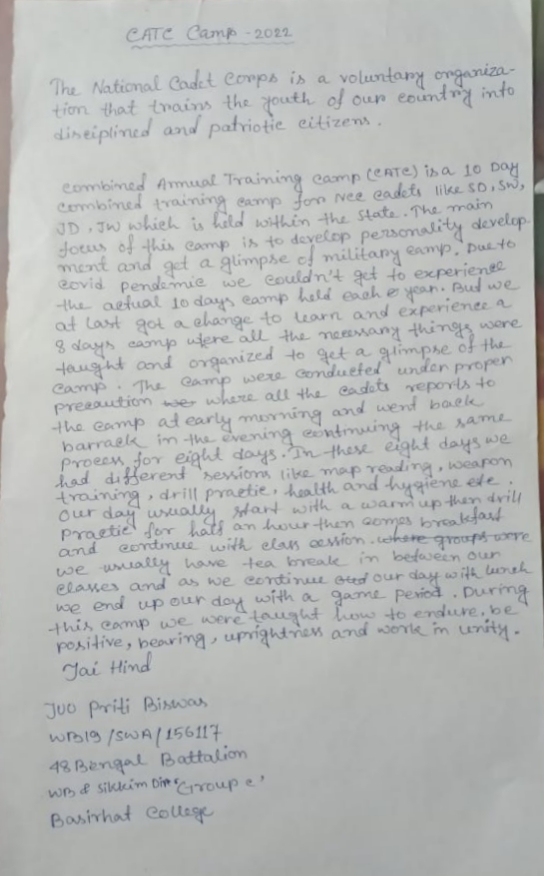 CATC Camp - 2022
The National Cadet Corps is a voluntary organiza-
tion that trains the youth of our country into
disciplined and patriotic citizens.
Combined Annual Training Camp (CATC) is a 10 Day
combined training camp for NCC cadets like SD, SW,
JD, JW which is held within the state. The main
focus of this camp is to develop personality develop-
ment and get a glimpse of military camp. Due to
covid pendemic we couldn't get to experience
the actual 10 days camp held each year. But we
at last got a change to learn and experience a
8 days camp were all the necessary things were
taught and organized to get a glimpse of the
camp. The camp were conducted under proper
precaution where all the cadets reports to
the camp at early morning and went back
barrack in the evening continuing the same
process for eight days. In these eight days we
had different sessions like map reading, weapon
training, drill practie, health and hygiene etc.
Our day usually start with a warm up then drill
practie for half an hour then comes breakfast
and continue with class session. where groups were
we usually have tea break in between our
classes and as we continue our day with lunch
we end up our day with a game period. During
this camp we were taught how to endure, be
positive, bearing, uprightness and work in unity.
Jai Hind
JUO Priti Biswas
WB19/SWA/156117
48 Bengal Battalion
WB & Sikkim Dir Group C'
Basirhat College